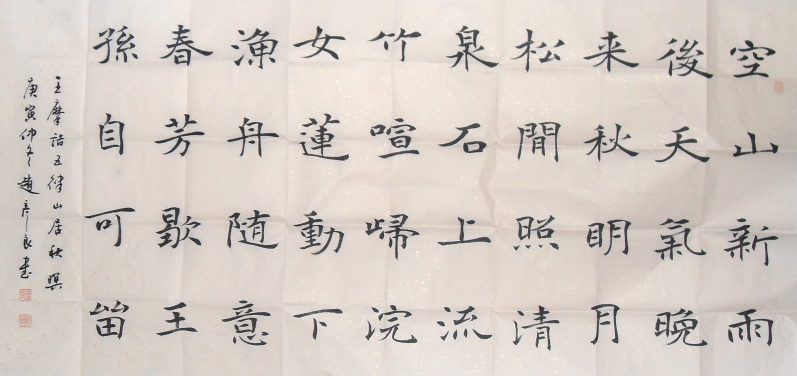 空山新雨
後天氣晚
来秋明月
松間照清
泉石上流
竹喧歸浣
女蓮動下
漁舟随意
春芳歇王
孫自可留
王摩詰五律山居秋暝
庚寅仲冬趙彦良書